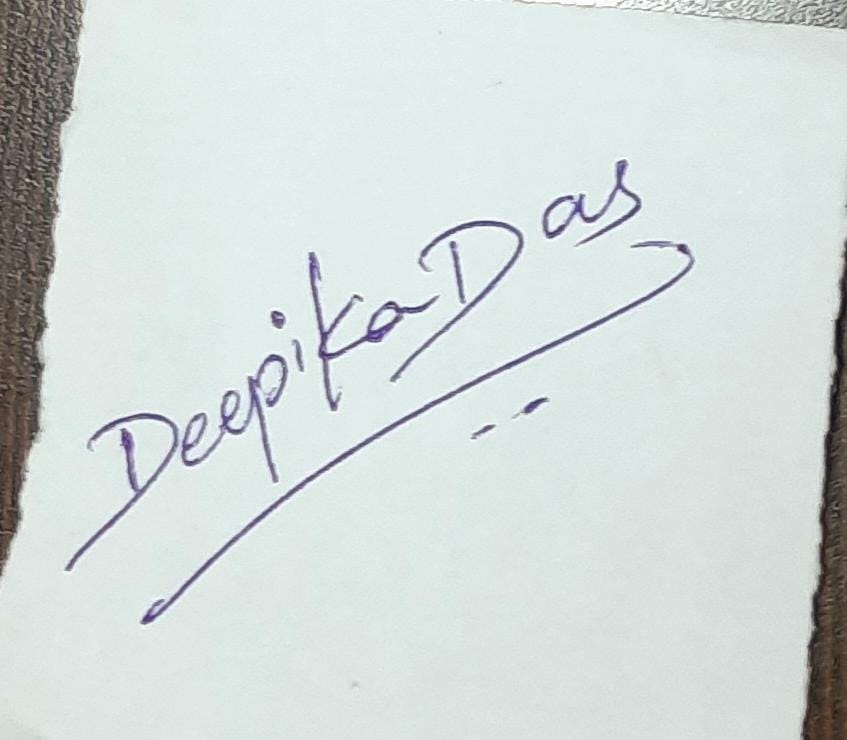 Deepika Das